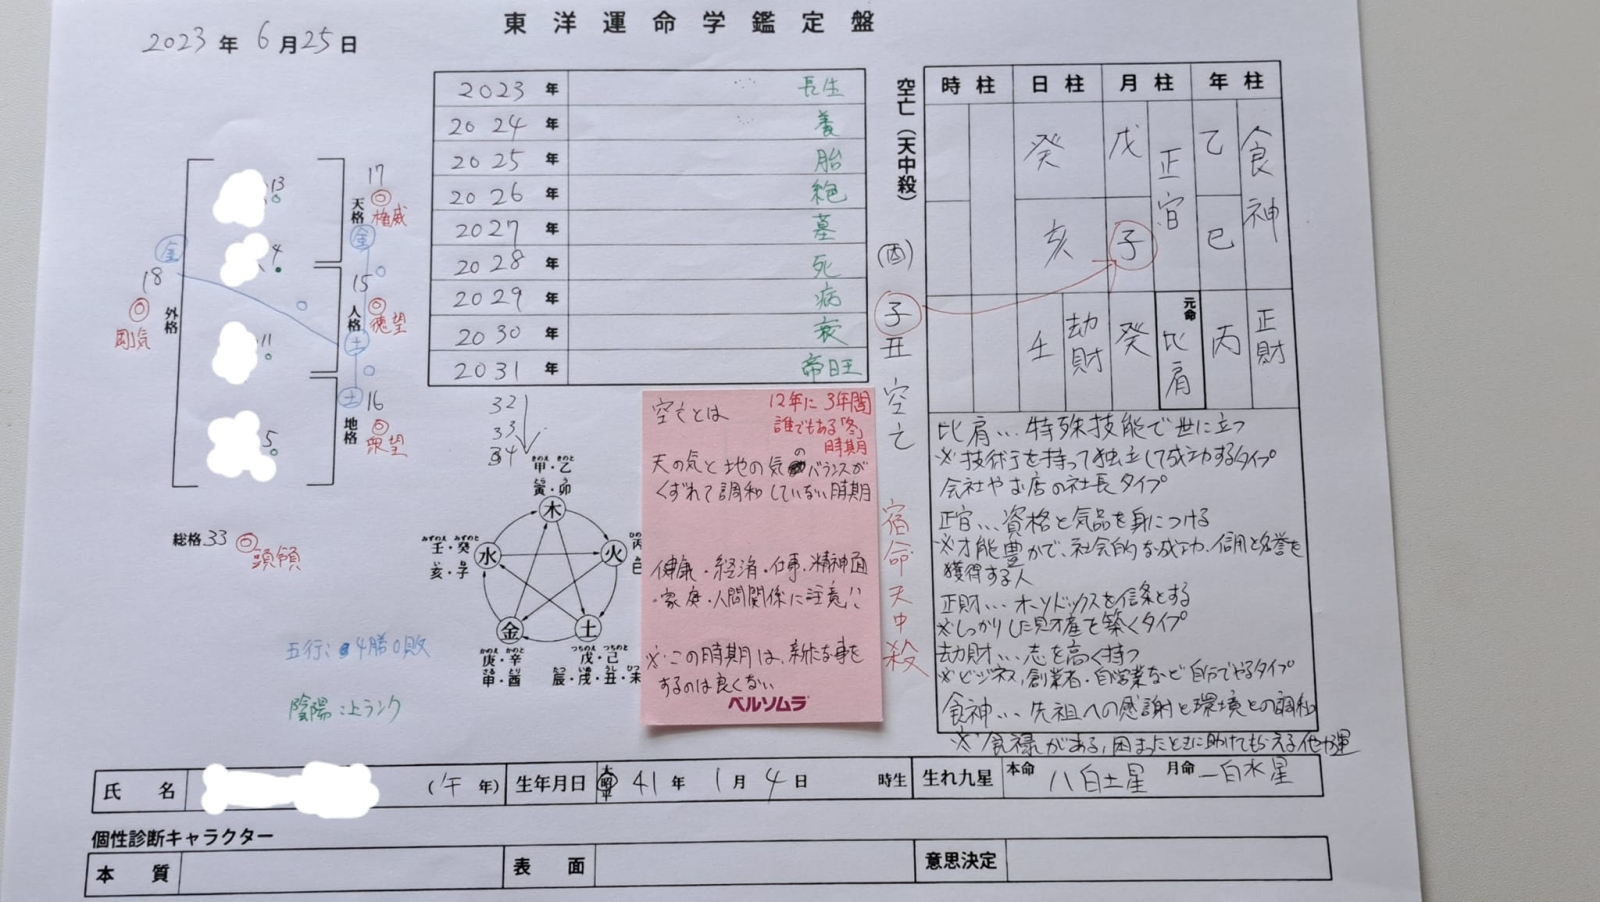 東洋運命学鑑定盤
2023年 6月25日
2023年 長生
2024年 養
2025年 胎
2026年 絶
2027年 墓
2028年 死
2029年 病
2030年 衰
2031年 帝旺
32
33
34
13
4
11
5
17
天格
権威
金
15
人格
徳望
土
16
地格
衆望
土
金
18
外格
剛気
総格 33 頭領
五行:4勝0敗
陰陽:上ランク
きのえ きのと
甲・乙
とら う
寅・卯
木
火
土
金
水
みずのえ みずのと
壬・癸
亥・子
かのえ かのと
庚・辛
さる とり
申・酉
つちのえ つちのと
戊・己
たつ いぬ うし ひつじ
辰・戌・丑・未
空亡とは
12年に3年間
誰でもある「冬」の
時期
天の気と地の気のバランスが
くずれて調和していない時期
健康・経済・仕事・精神面
・家庭・人間関係に注意!!
※この時期は、新たな事を
するのは良くない
ベルソムラ
空亡(天中殺)
子
丑
空亡
宿命天中殺
時柱 日柱 月柱 年柱
癸 戊 正官 乙 食神
亥 子 巳
壬 劫財 癸 元命 比肩 丙 正財
比肩…特殊技能で世に立つ
※技術等を持って独立して成功するタイプ
会社やお店の社長タイプ
正官…資格と気品を身につける
※才能豊かで、社会的な成功、信用と名誉を
獲得する人
正財…オーソドックスを信条とする
※しっかりした財産を築くタイプ
劫財…志を高く持つ
※ビジネス、創業者・自営業など自分でやるタイプ
食神…先祖への感謝と環境との調和
※食禄がある、困ったときに助けてもらえる他力運
氏名 (午年) 生年月日 大昭平 41年 1月 4日 時生 生れ九星 本命 八白土星 月命 一白水星
個性診断キャラクター
本質 表面 意思決定